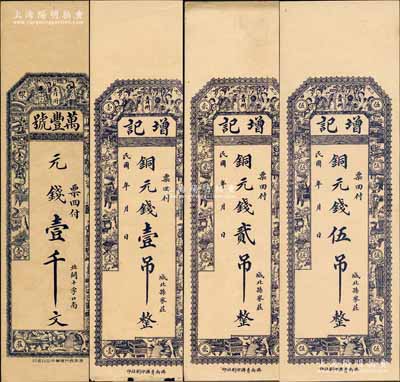 上海陽明拍賣
萬豐號
票回付
元錢壹千文
北關十字口南
增記
票回付
銅元錢壹吊整
民國 年 月 日
城北孫家莊
增記
票回付
銅元錢貳吊整
民國 年 月 日
城北孫家莊
增記
票回付
銅元錢伍吊整
民國 年 月 日
城北孫家莊